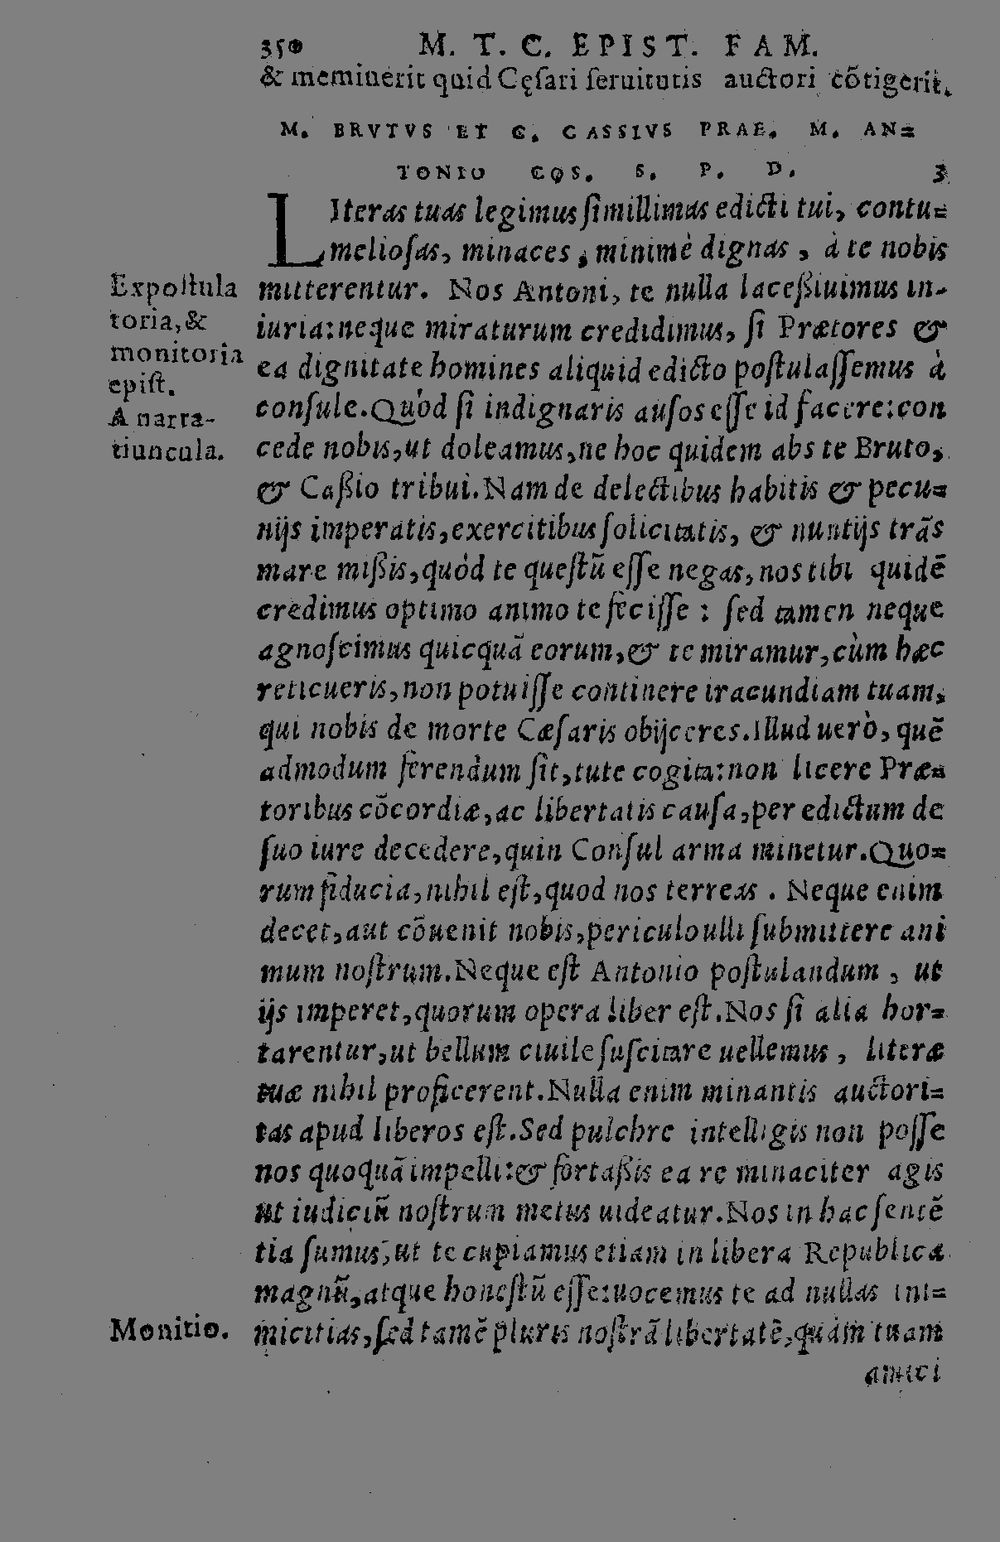 350 M. T. C. EPIST. FAM.
& meminerit quid Cęsari seruitutis auctori cõtigerit.
M. BRVTVS ET C. CASSIVS PRAE. M. AN=
TONIO COS. S. P. D. 3
LIteras tuas legimus simillimas edicti tui, contu=
meliosas, minaces, minimè dignas, à te nobis
Expostula
mitterentur. Nos Antoni, te nulla laceßiuimus in-
toria,&
iuria:neque miraturum credidimus, si Prætores &
monitoria
ea dignitate homines aliquid edicto postulassemus à
epist.
consule.Quòd si indignaris ausos esse id facere:con
A narra-
cede nobis,ut doleamus,ne hoc quidem abs te Bruto,
tiuncula.
& Caßio tribui.Nam de delectibus habitis & pecu=
nijs imperatis,exercitibus solicitatis, & nuntijs trãs
mare mißis,quòd te questũ esse negas,nos tibi quidẽ
credimus optimo animo te fecisse : sed tamen neque
agnoscimus quicquã eorum,& te miramur,cùm hæc
reticueris,non potuisse continere iracundiam tuam,
qui nobis de morte Cæsaris obijceres.Illud uerò, quẽ
admodum ferendum sit,tute cogita:non licere Præ=
toribus cõcordiæ,ac libertatis causa,per edictum de
suo iure decedere,quin Consul arma minetur.Quo=
rum fiducia,nihil est,quod nos terreas . Neque enim
decet,aut cõuenit nobis,periculo ulli submittere ani
mum nostrum.Neque est Antonio postulandum , ut
ijs imperet,quorum opera liber est.Nos si alia hor=
tarentur,ut bellum ciuile suscitare uellemus , literæ
tuæ nihil proficerent.Nulla enim minantis auctori=
tas apud liberos est.Sed pulchre intelligis non posse
nos quoquã impelli:& fortaßis ea re minaciter agis
ut iudiciũ nostrum metus uideatur.Nos in hac sentẽ
tia sumus,ut te cupiamus etiam in libera Republica
magnũ,atque honestũ esse:uocemus te ad nullas ini=
Monitio.
micitias,sed tamẽ pluris nostrã libertatẽ,quàm tuam
amici